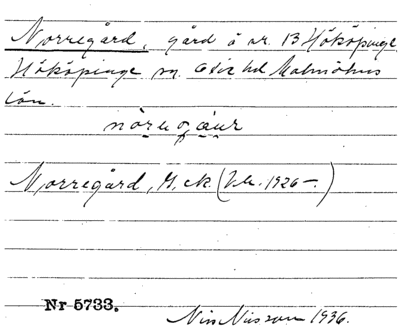 Norregård, gård å nr. 13 Hököpinge
Hököpinge sn. Oxie hd Malmöhus
län.
Norregård, G. ek. (1926 –.)
Nr 5733.
Nils Nilsson 1936.